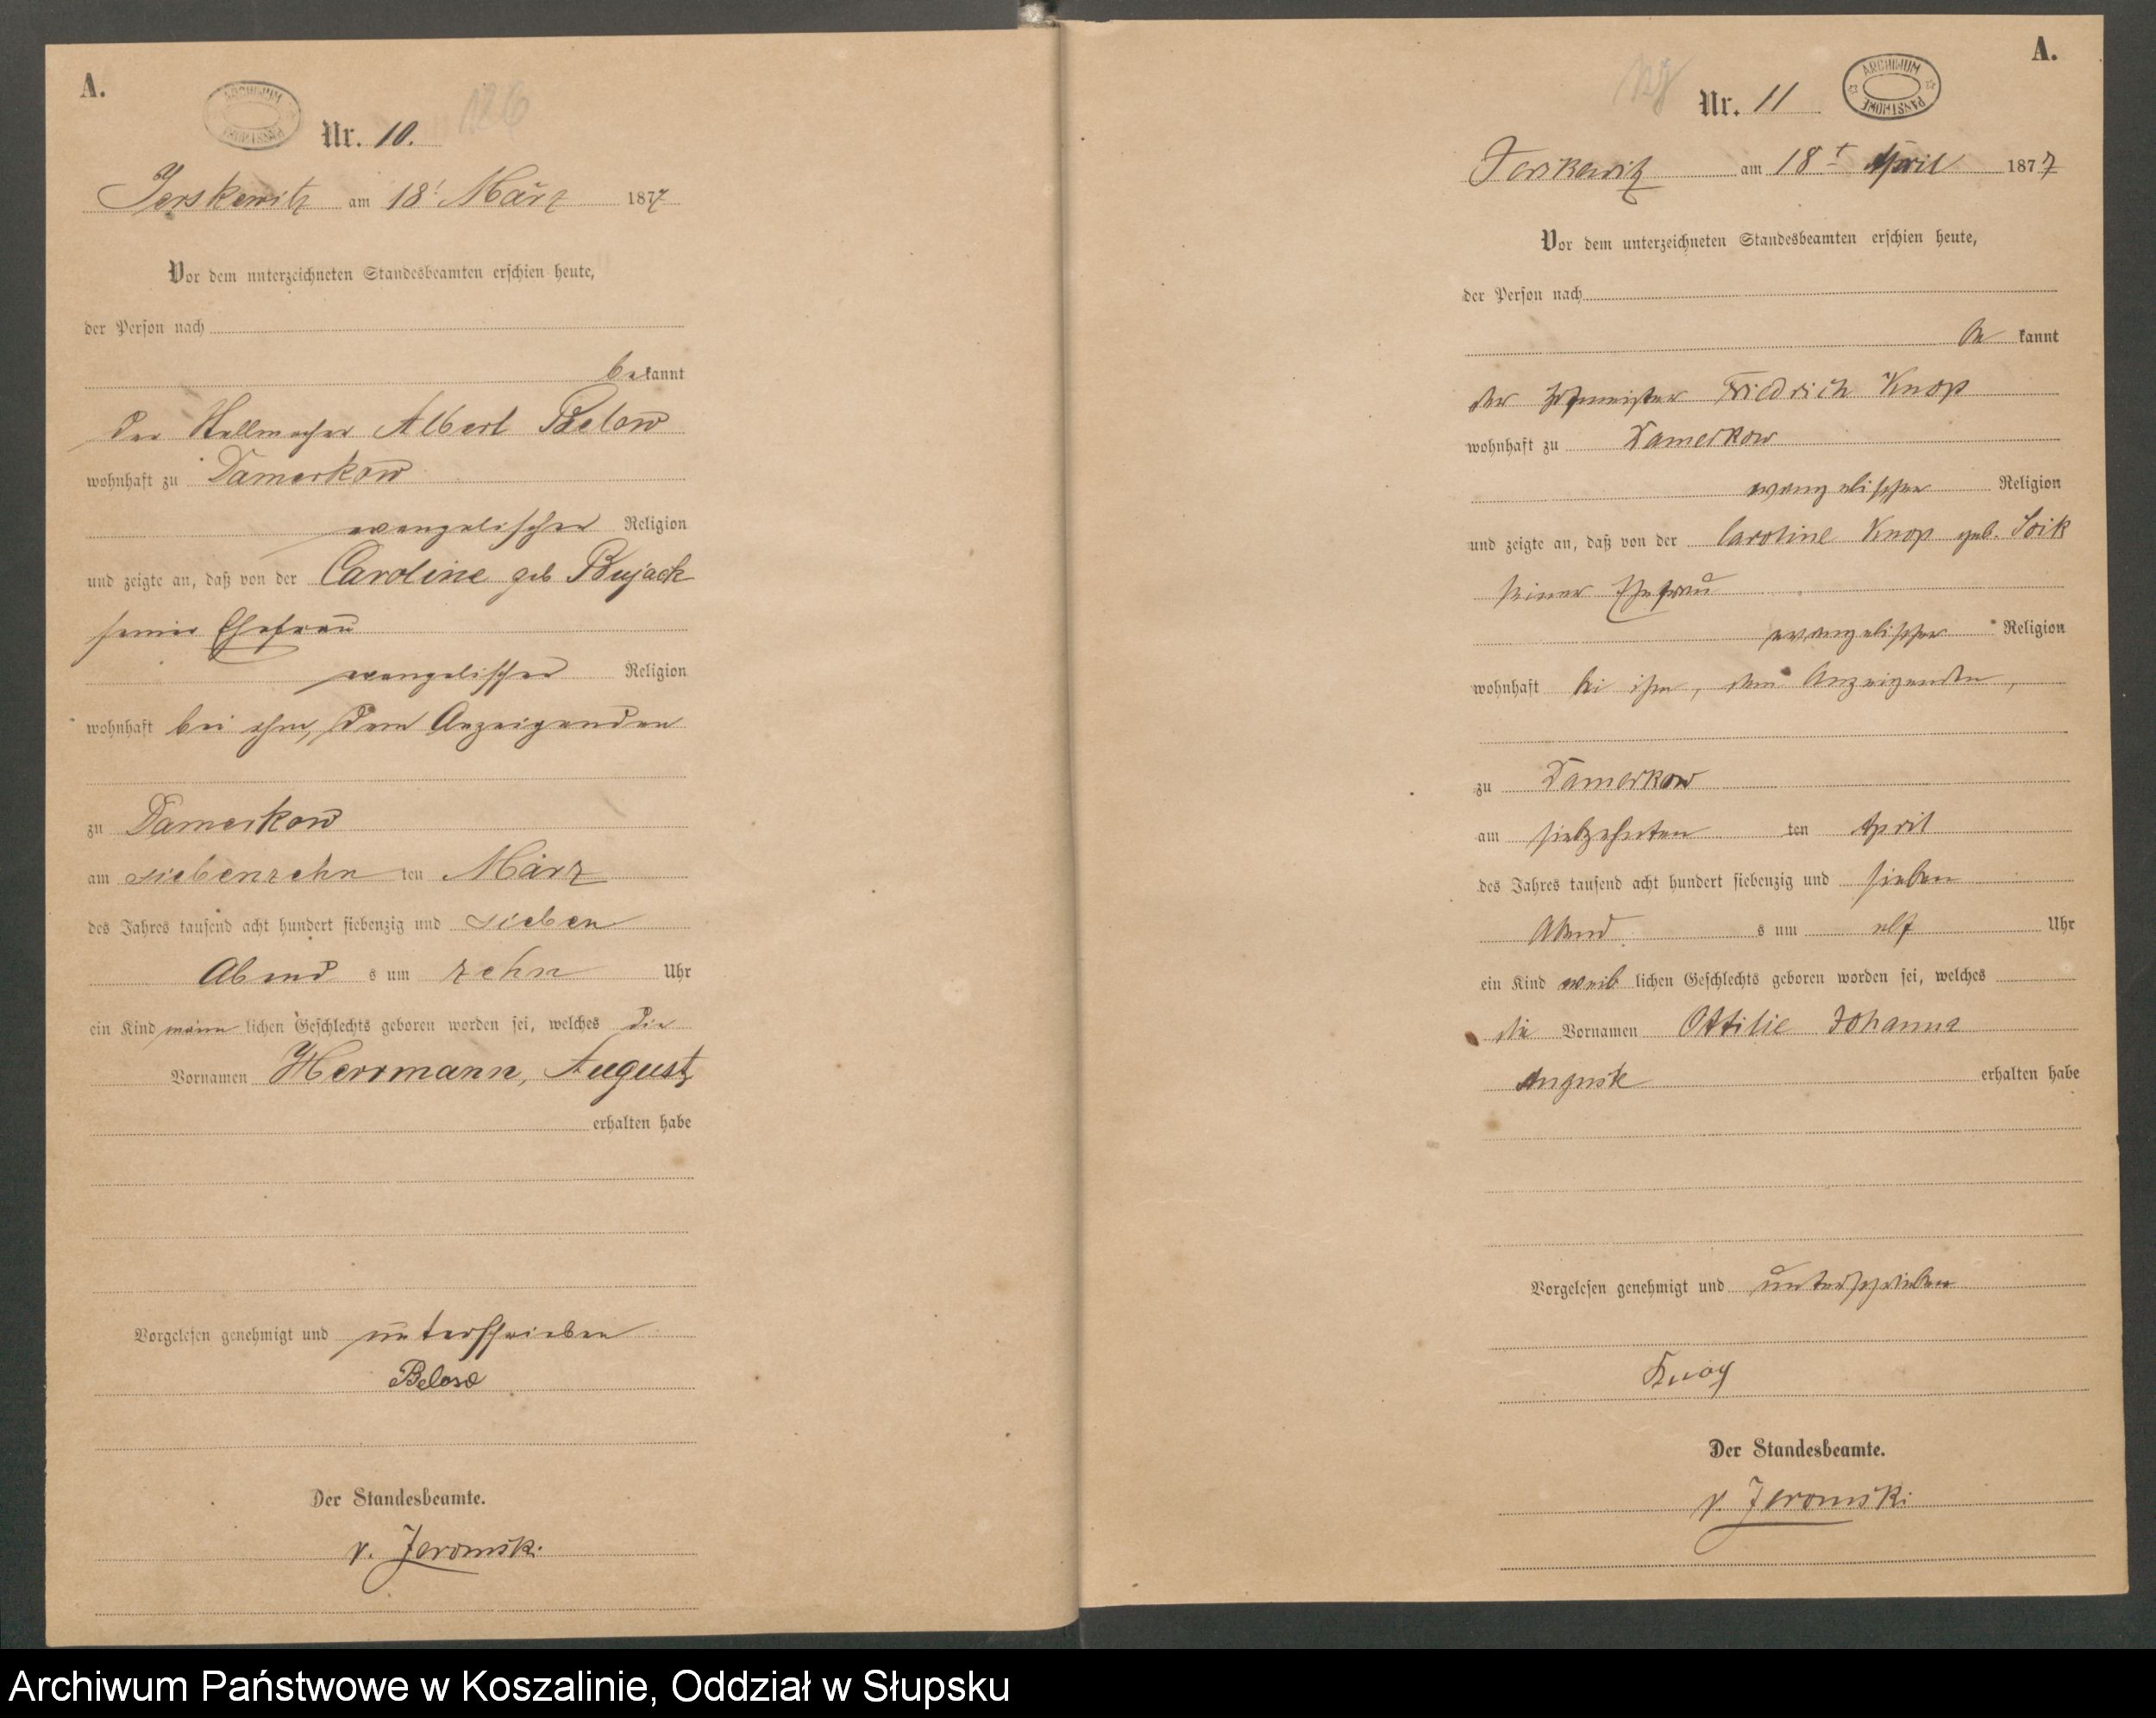 A.
ARCHIWUM PAŃSTWOWE
126
Nr. 10.
Jerskewitz am 18t März 1877
Vor dem unterzeichneten Standesbeamten erschien heute,
der Person nach
bekannt
der Stellmacher Albert Below
wohnhaft zu Damerkow
evangelischer Religion
und zeigte an, daß von der Caroline geb Bujack
seiner Ehefrau
evangelischer Religion
wohnhaft bei ihm, dem Anzeigenden
zu Damerkow
am siebenzehn ten März
des Jahres tausend acht hundert siebenzig und sieben
Abend s um zehn Uhr
ein Kind männlichen Geschlechts geboren worden sei, welches die
Vornamen Herrmann, August
erhalten habe
Vorgelesen genehmigt und unterschrieben
Below
Der Standesbeamte.
v. Jeromski.
A.
Nr. 11
ARCHIWUM PAŃSTWOWE
Jerskewitz am 18t April 1877
Vor dem unterzeichneten Standesbeamten erschien heute,
der Person nach
be kannt
der Hofmeister Friedrich Knop
wohnhaft zu Damerkow
evangelischer Religion
und zeigte an, daß von der Caroline Knop geb. Soik
seiner Ehefrau
evangelischer Religion
wohnhaft bei ihm, dem Anzeigenden,
zu Damerkow
am siebzehnten ten April
des Jahres tausend acht hundert siebenzig und sieben
Abend s um elf Uhr
ein Kind weib lichen Geschlechts geboren worden sei, welches
die Vornamen Ottilie Johanna
Auguste erhalten habe
Vorgelesen genehmigt und unterschrieben
Knop
Der Standesbeamte.
v. Jeromski.
Archiwum Państwowe w Koszalinie, Oddział w Słupsku